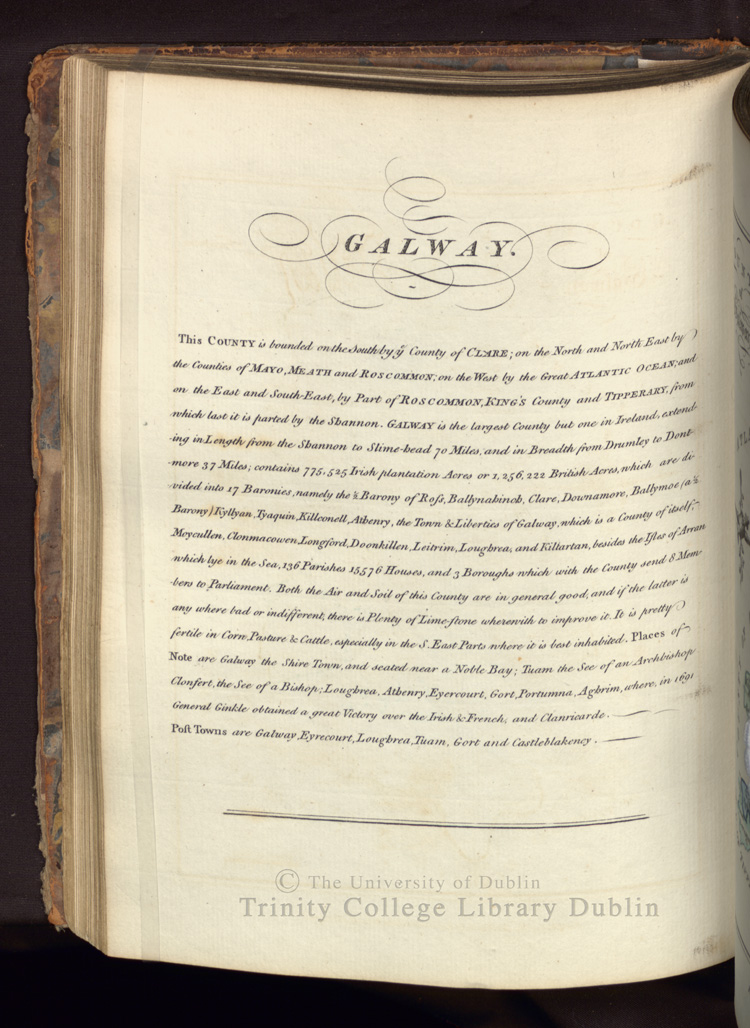 GALWAY.
This COUNTY is bounded on the South by yͤ County of CLARE; on the North and North East by
the Counties of MAYO, MEATH and ROSCOMMON; on the West by the Great ATLANTIC OCEAN; and
on the East and South-East, by Part of ROSCOMMON, KING'S County and TIPPERARY, from
which last it is parted by the Shannon. GALWAY is the largest County but one in Ireland, extend-
-ing in Length from the Shannon to Slime-head 70 Miles, and in Breadth from Drumley to Dont-
more 37 Miles; contains 775,525 Irish plantation Acres or 1,256,222 British Acres, which are di-
vided into 17 Baronies, namely the ½ Barony of Roſs, Ballynahinch, Clare, Downamore, Ballymoe (a ½
Barony) Kyllyan, Tyaquin, Killconell, Athenry, the Town & Liberties of Galway, which is a County of itself,
Moycullen, Clonmacowen, Longford, Doonkillen, Leitrim, Loughrea, and Kiltartan, besides the Iſles of Arran
which lye in the Sea, 136 Parishes 15,576 Houses, and 3 Boroughs which with the County send 8 Mem-
bers to Parliament. Both the Air and Soil of this County are in general good, and if the latter is
any where bad or indifferent, there is Plenty of Lime-ſtone wherewith to improve it. It is pretty
fertile in Corn, Pasture & Cattle, especially in the S. East Parts where it is best inhabited. Places of
Note are Galway the Shire Town, and seated near a Noble Bay; Tuam the See of an Archbishop
Clonfert, the See of a Bishop; Loughrea, Athenry, Eyercourt, Gort, Portumna, Aghrim, where, in 1691
General Ginkle obtained a great Victory over the Irish & French, and Clanricarde.
Poſt Towns are Galway, Eyrecourt, Loughrea, Tuam, Gort and Castleblakency.
© The University of Dublin
Trinity College Library Dublin